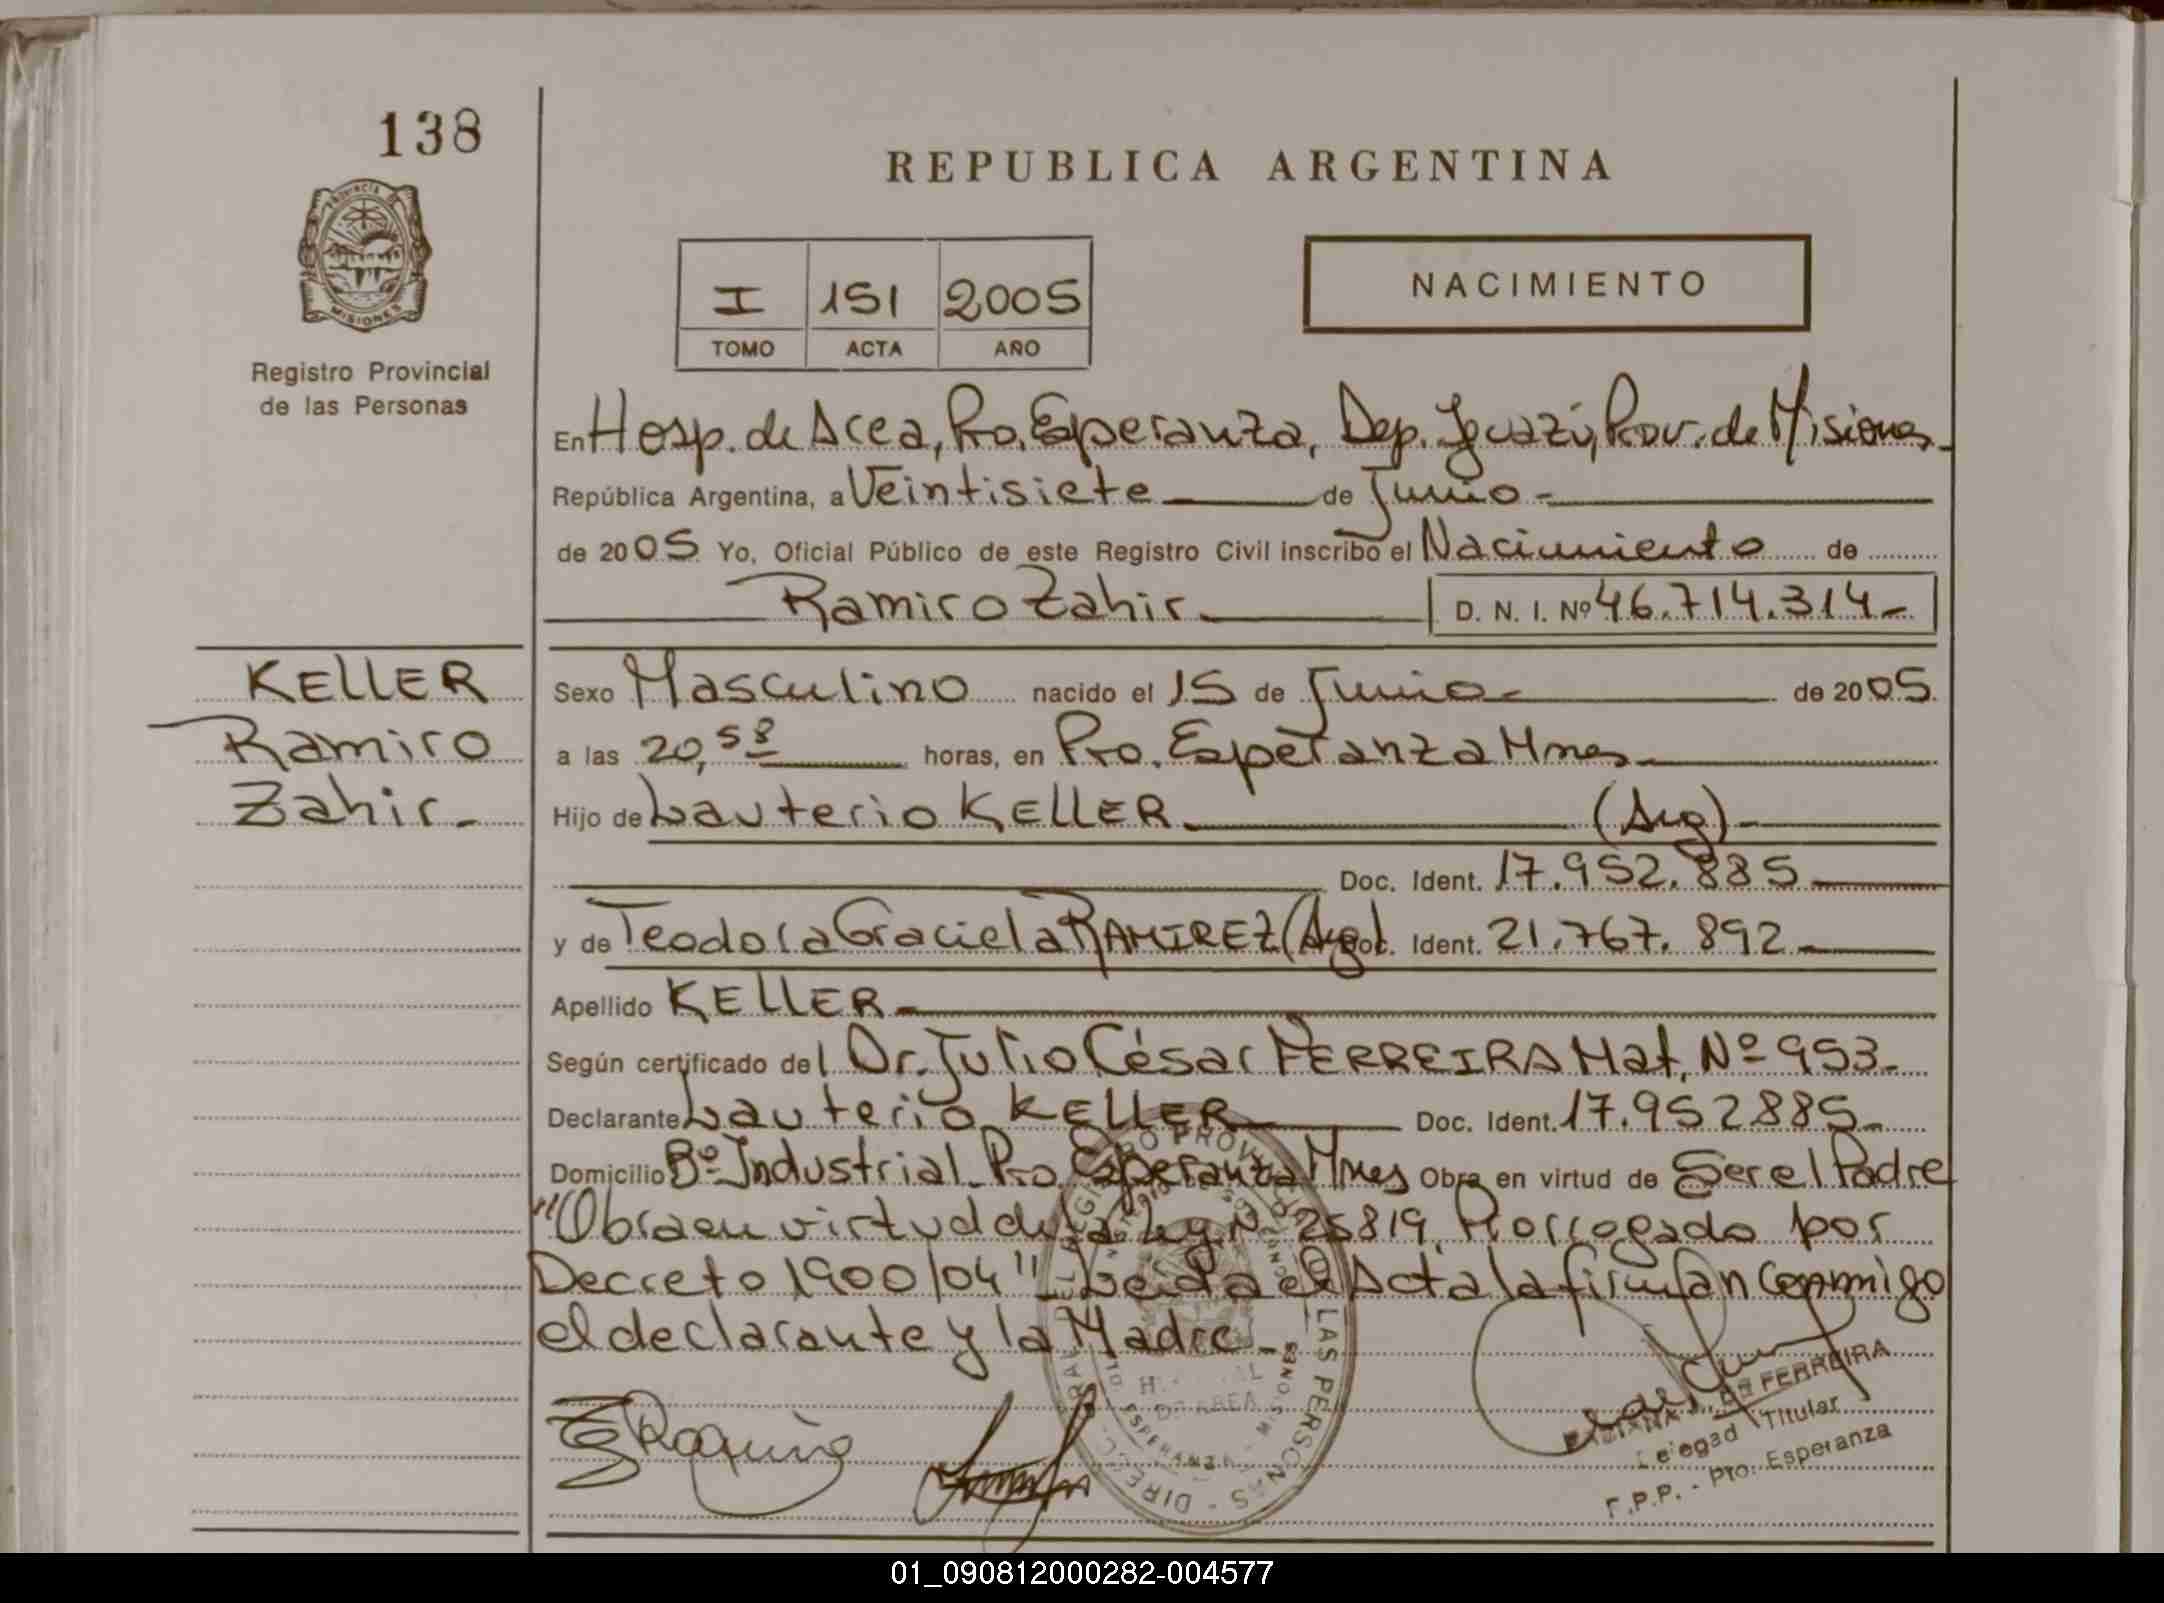 138
REPUBLICA ARGENTINA
MISIONES
I 151 2005
TOMO ACTA AÑO
NACIMIENTO
Registro Provincial
de las Personas
En Hosp. de Area, Pto. Esperanza, Dep. Iguazú, Prov. de Misiones
República Argentina, a Veintisiete de Junio
de 2005 Yo, Oficial Público de este Registro Civil inscribo el Nacimiento de
Ramiro Zahir D. N. I. Nº 46.714.314
KELLER
Ramiro
Zahir
Sexo Masculino nacido el 15 de Junio de 2005
a las 20,58 horas, en Pto. Esperanza Mnes
Hijo de Lauterio KELLER (Arg)
Doc. Ident. 17.952.885
y de Teodora Graciela RAMIREZ (Arg) Doc. Ident. 21.767.892
Apellido KELLER
Según certificado del Dr. Julio César FERREIRA Mat. Nº 953
Declarante Lauterio KELLER Doc. Ident. 17.952885
Domicilio Bº Industrial Pto. Esperanza Mnes Obra en virtud de Ser el Padre
"Obra en virtud de la Ley Nº 25819, Prorrogado por
Decreto 1900/04" Leida el Acta la firman Conmigo
el declarante y la Madre
FERREIRA
Titular
Pto. Esperanza
01_090812000282-004577